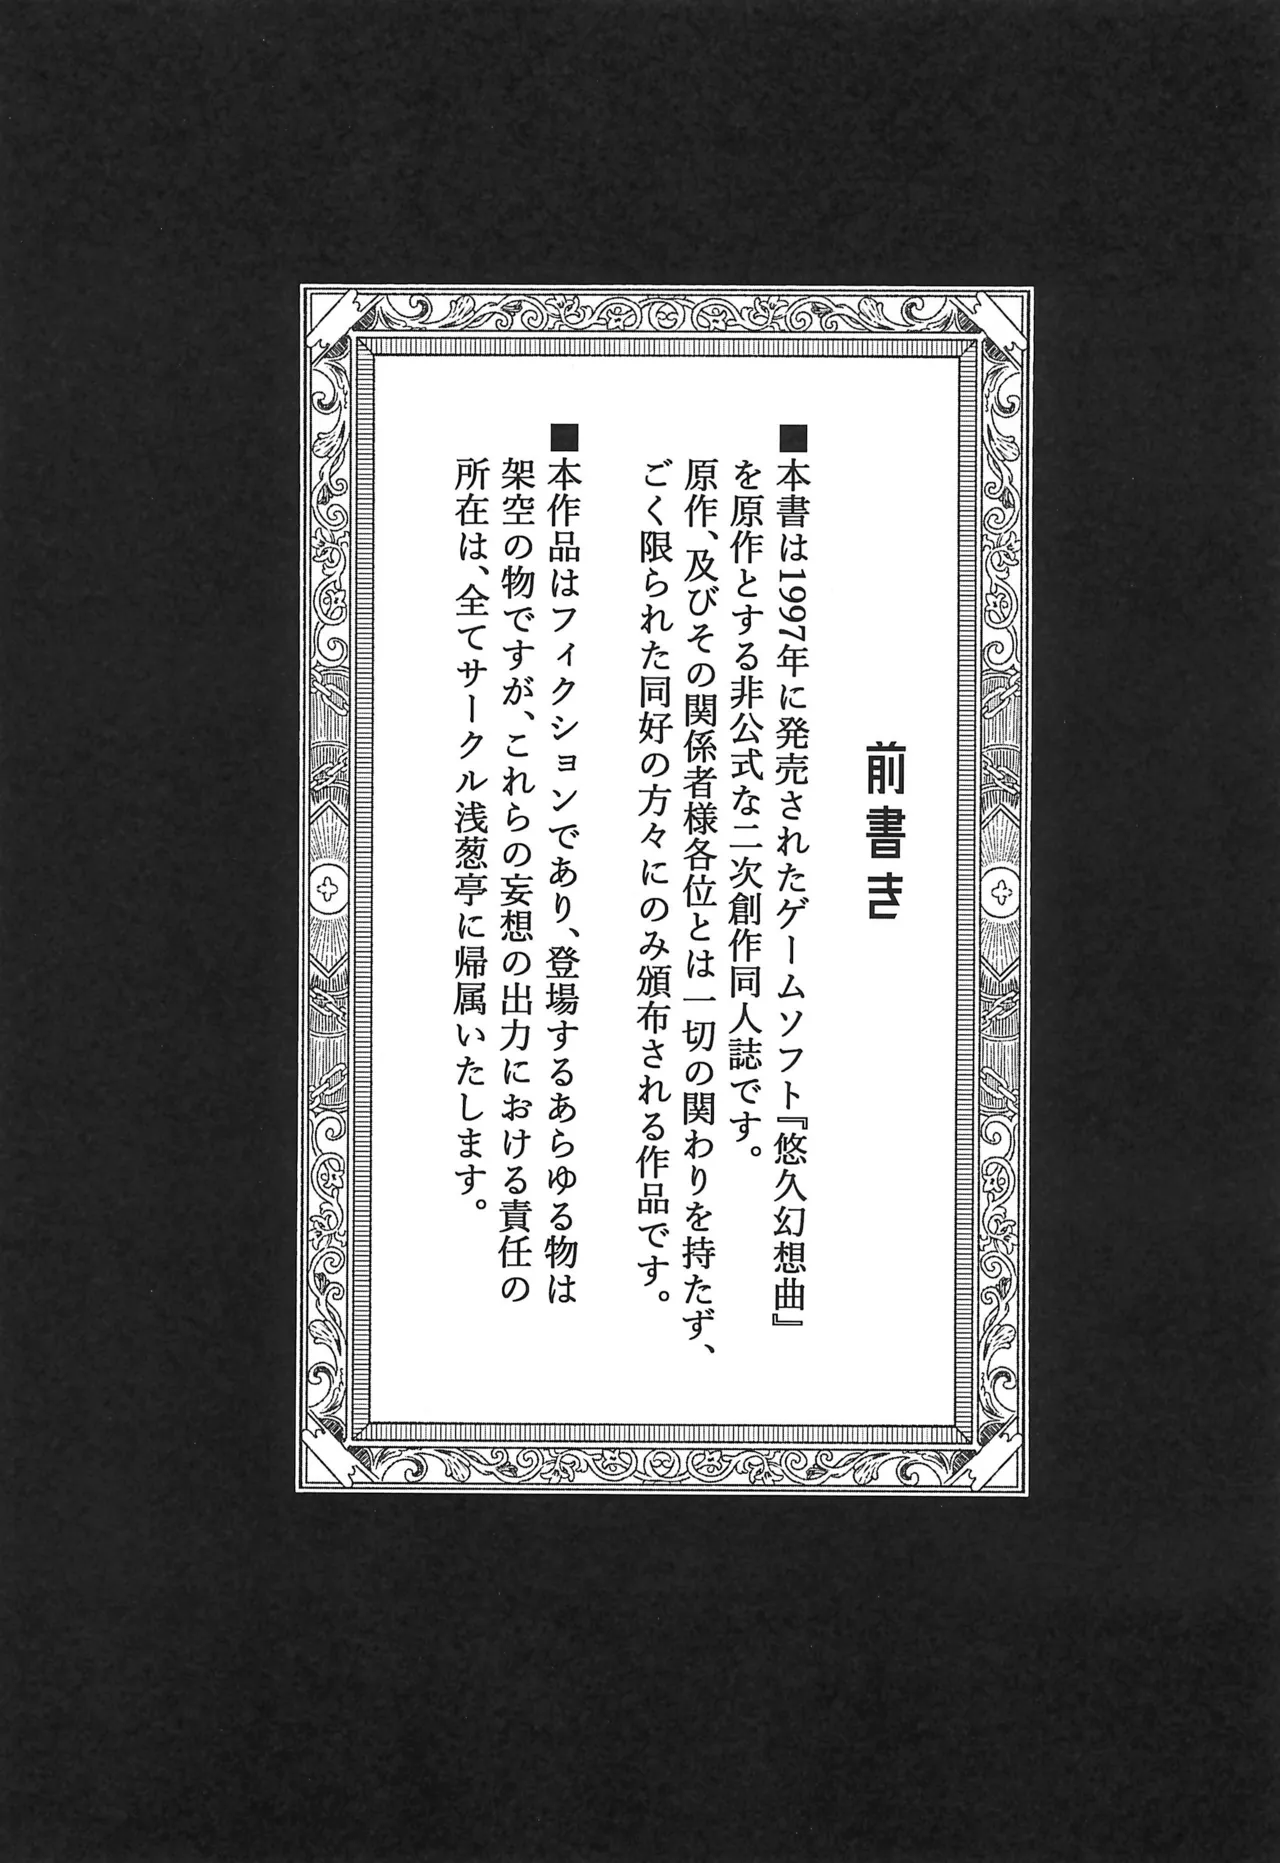 前書き
■本書は1997年に発売されたゲームソフト『悠久幻想曲』
を原作とする非公式な二次創作同人誌です。
原作、及びその関係者様各位とは一切の関わりを持たず、
ごく限られた同好の方々にのみ頒布される作品です。
■本作品はフィクションであり、登場するあらゆる物は
架空の物ですが、これらの妄想の出力における責任の
所在は、全てサークル浅葱亭に帰属いたします。